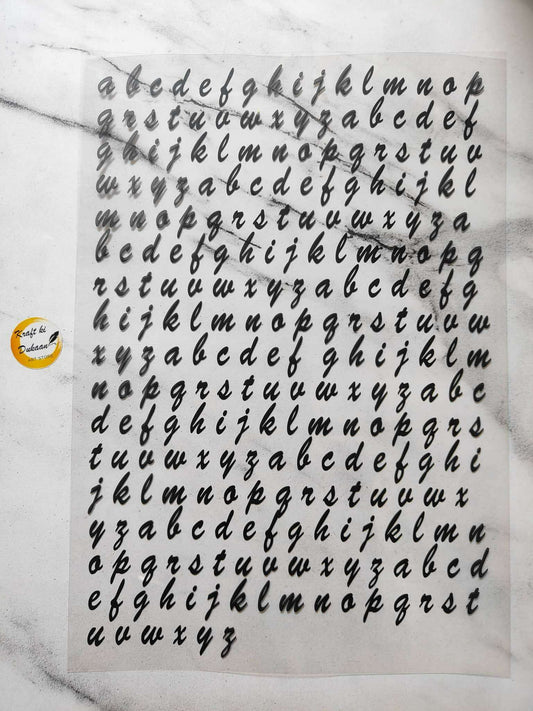 a b c d e f g h i j k l m n o p
q r s t u v w x y z a b c d e f
g h i j k l m n o p q r s t u v
w x y z a b c d e f g h i j k l
m n o p q r s t u v w x y z a
b c d e f g h i j k l m n o p q
r s t u v w x y z a b c d e f g
h i j k l m n o p q r s t u v w
x y z a b c d e f g h i j k l m
n o p q r s t u v w x y z a b c
d e f g h i j k l m n o p q r s
t u v w x y z a b c d e f g h i
j k l m n o p q r s t u v w x
y z a b c d e f g h i j k l m n
o p q r s t u v w x y z a b c d
e f g h i j k l m n o p q r s t
u v w x y z
Kraft ki
Dukaan